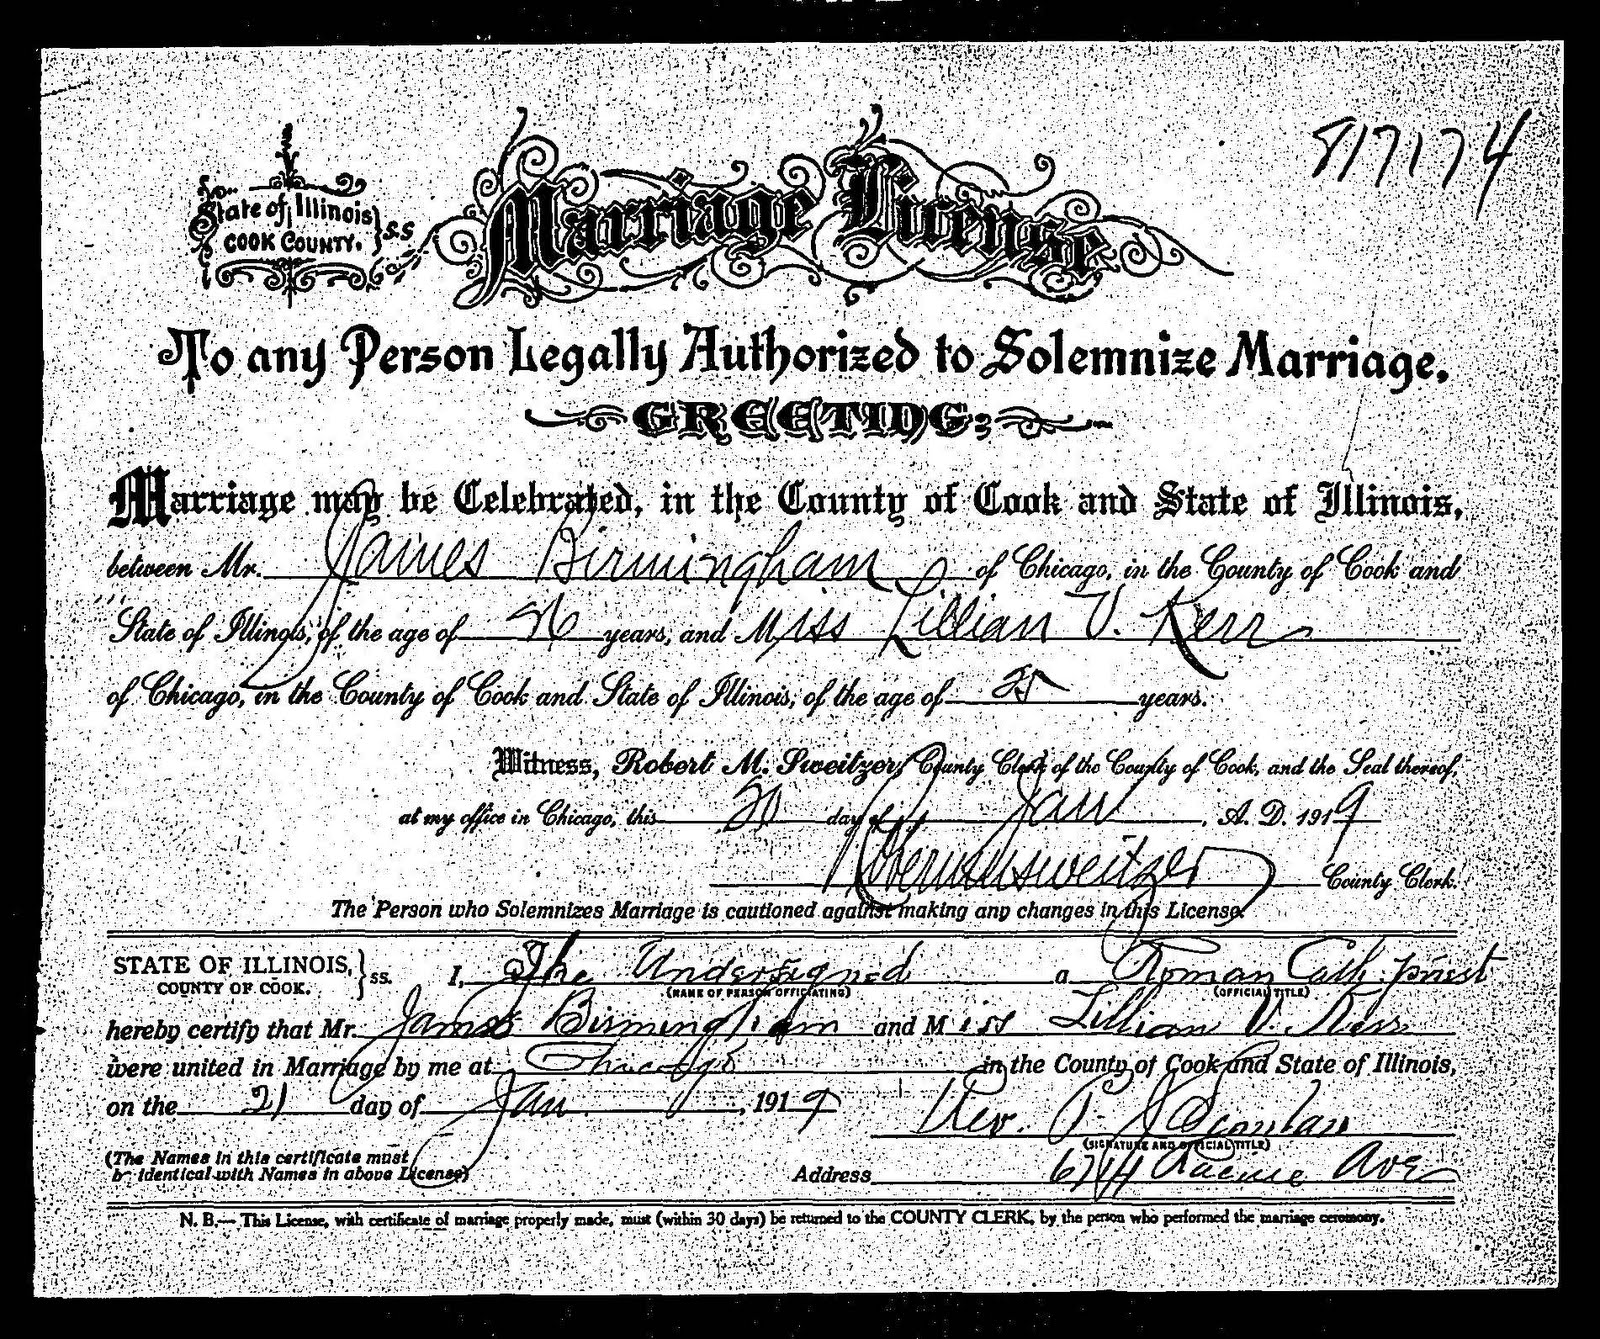 817174
State of Illinois } S.S
COOK COUNTY.
Marriage License
To any Person Legally Authorized to Solemnize Marriage,
GREETING:
Marriage may be Celebrated, in the County of Cook and State of Illinois,
between Mr. James Birmingham of Chicago, in the County of Cook and
State of Illinois, of the age of 26 years, and Miss Lillian V. Kerr
of Chicago, in the County of Cook and State of Illinois, of the age of 25 years.
Witness, Robert M. Sweitzer, County Clerk of the County of Cook, and the Seal thereof,
at my office in Chicago, this 20 day of Jan , A. D. 1919
Robert M Sweitzer County Clerk.
The Person who Solemnizes Marriage is cautioned against making any changes in this License.
STATE OF ILLINOIS, } ss. I, The Undersigned a Roman Cath. priest
COUNTY OF COOK. (NAME OF PERSON OFFICIATING) (OFFICIAL TITLE)
hereby certify that Mr. James Birmingham and Miss Lillian V. Kerr
were united in Marriage by me at Chicago in the County of Cook and State of Illinois,
on the 21 day of Jan. , 1919 Rev. P. J. Scanlan
(SIGNATURE AND OFFICIAL TITLE)
(The Names in this certificate must
be identical with Names in above License) Address 6714 Racine Ave
N. B.— This License, with certificate of marriage properly made, must (within 30 days) be returned to the COUNTY CLERK, by the person who performed the marriage ceremony.